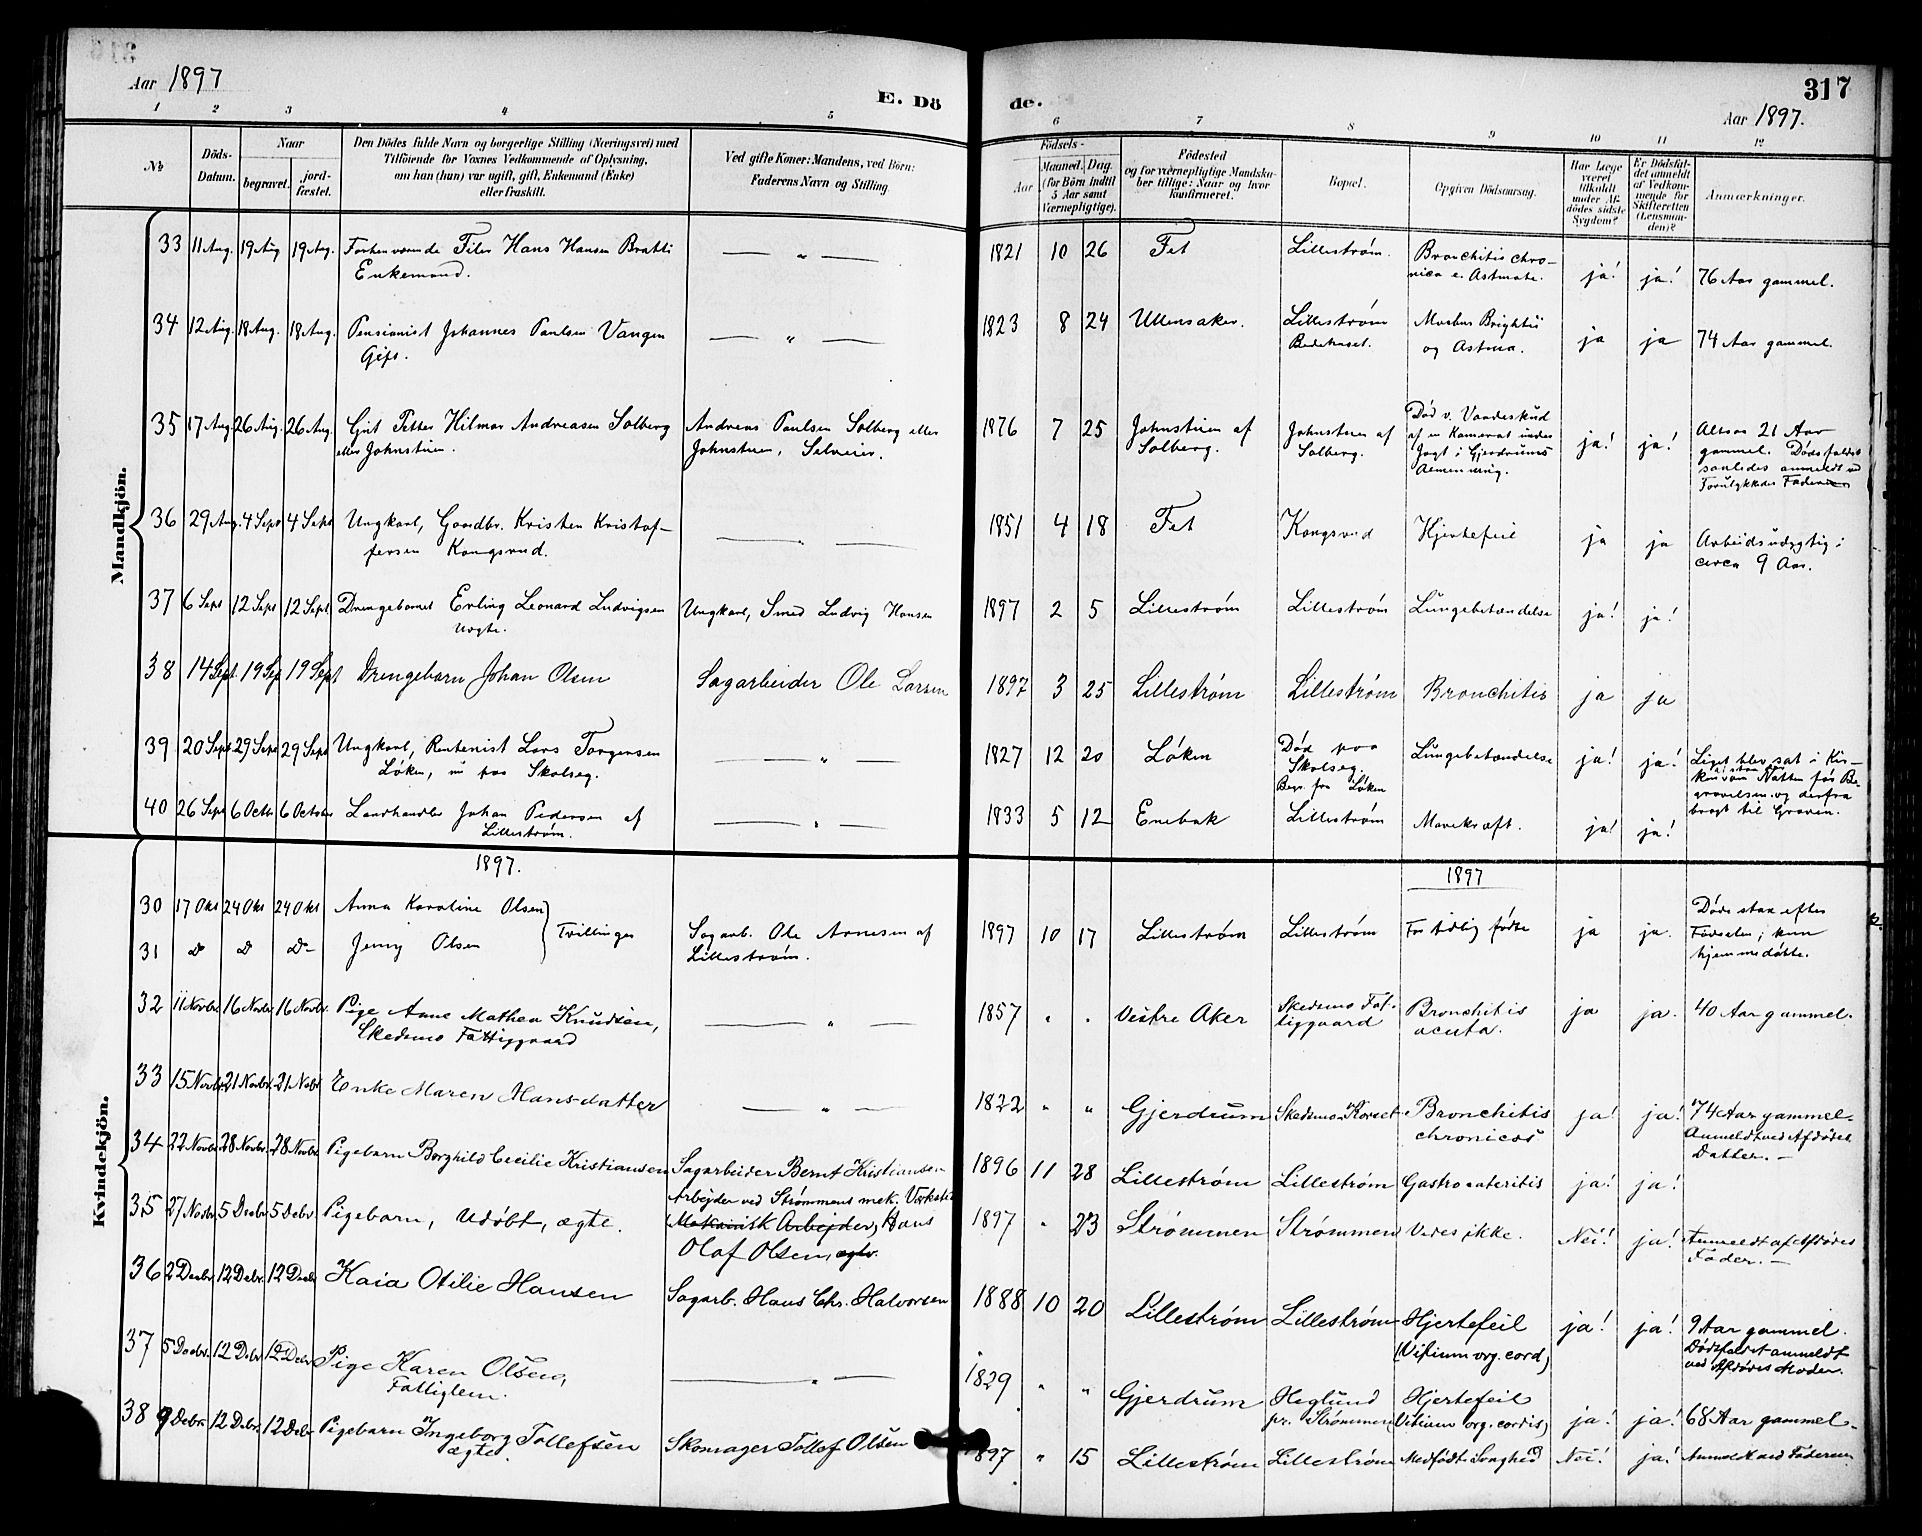 Aar 1897
E. Dö
de.
317
Aar 1897.
1 2 3 4 5 6 7 8 9 10 11 12
№
Döds-
Datum.
Naar
begravet.
jord-
fæstet.
Den Dödes fulde Navn og borgerlige Stilling (Næringsvei) med
Tilföiende for Voxnes Vedkommende af Oplysning,
om han (hun) var ugift, gift, Enkemand (Enke)
eller fraskilt.
Ved gifte Koner: Mandens, ved Börn:
Faderens Navn og Stilling.
Födsels-
Aar
Maaned. Dag.
(for Börn indtil
5 Aar samt
Værnepligtige).
Födested
og for værnepligtige Mandska-
ber tillige: Naar og hvor
konfirmeret.
Bopæl.
Opgiven Dödsaarsag.
Har Læge
været
tilkaldt
under Af-
dödes sidste
Sygdom?
Er Dödsfal-
det anmeldt
af Vedkom-
mende for
Skifteretten
(Lensman-
den)?
Anmærkninger.
Mandkjön.
33 11 Aug. 19 Aug 19 Aug. Forhenværende Filer Hans Hansen Bratli — " — 1821 10 26 Fet Lillestrøm. Bronchitis chro-
Enkemand. nica c. Astmate. ja! ja! 76 Aar gammel.
34 12 Aug. 18 Aug. 18 Aug. Pensionist Johannes Paulsen Vangen — " — 1823 8 24 Ullensaker. Lillestrøm Morbus Brightii
Gift. Bedehuset. og Astma. ja ja 74 Aar gammel.
35 17 Aug. 26 Aug. 26 Aug. Gut Petter Hilmar Andreasen Solberg Andreas Paulsen Solberg eller 1876 7 25 Johnstuen af Johnstuen af Død v. Vaadeskud
eller Johnstuen. Johnstuen, Selveier. Solberg. Solberg. af en Kamerat under
Jagt i Gjerdrums
Almenning. ja! ja! Altsaa 21 Aar
gammel. Dødsfaldet
saaledes anmeldt ved
Forulykkedes Fader
36 29 Aug. 4 Sept 4 Sept Ungkarl, Gaardbr. Kristen Kristof-
fersen Kongsrud. — " — 1851 4 18 Fet Kongsrud Hjertefeil ja ja Arbeidsudygtig i
circa 9 Aar.
37 6 Sept 12 Sept 12 Sept Drengebarnet Erling Leonard Ludvigsen Ungkarl, Smed Ludvig Hansen 1897 2 5 Lillestrøm Lillestrøm Lungebetændelse ja! ja!
uægte.
38 14 Sept. 19 Sep 19 Sept Drengebarn Johan Olsen Sagarbeider Ole Larsen 1897 3 25 Lillestrøm Lillestrøm Bronchitis ja ja
39 20 Sept 29 Sept 29 Sept Ungkarl, Rentenist Lars Torgersen — " — 1827 12 20 Løken Død paa Lungebetændelse ja! ja! Liget blev sat i Kir-
Løken, nu paa Skolseg. Skolseg. Natten før Be-
Begr. fra Løken gravelsen og derfra
bragt til Graven.
40 26 Sept 6 Octbr 6 October Landhandler Johan Pedersen af — " — 1833 5 12 Enebak Lillestrøm Mavekræft. ja! ja!
Lillestrøm.
Kvindekjön.
1897. 1897
30 17 Okt 24 Okt 24 Okt Anna Karoline Olsen
31 Do Do Do Jenny Olsen Tvillinger Sagarb. Ole Arnesen af
Lillestrøm. 1897 10 17 Lillestrøm Lillestrøm For tidlig fødte ja ja. Døde strax efter
Fødselen; kun
hjemmedøbte.
32 11 Novbr 16 Novbr 16 Novbr. Pige Anne Mathea Knudsen, — " — 1857 " " Vestre Aker Skedsmo Fat- Bronchitis ja ja. 40 Aar gammel.
Skedsmo Fattiggaard tiggaard acuta.
33 15 Novbr. 21 Novbr. 21 Novbr Enke Maren Hansdatter — " — 1822 " " Gjerdrum Skedsmo-Korset Bronchitis ja! ja! 74 Aar gammel.
chronicas Anmeldt ved Afdødes
Datter. —
34 22 Novbr 28 Novbr. 28 Novbr Pigebarn Borghild Cecilie Kristiansen Sagarbeider Bernt Kristiansen 1896 11 28 Lillestrøm Lillestrøm Gastroenteritis ja! ja!
35 27 Novbr 5 Decbr 5 Debr. Pigebarn, Udøbt, ægte. Arbejder ved Strømmens mek. Værksted
(Mekanisk Arbejder) Hans
Olaf Olsen, ægte. 1897 " 23 Strømmen Strømmen Vides ikke. Nei! ja! Anmeldt af Afdødes
Fader. —
36 2 Decbr 12 Debr. 12 Decbr Kaia Otilie Hansen Sagarb. Hans Chr. Halvorsen 1888 10 20 Lillestrøm Lillestrøm Hjertefeil
(Vitium org. cord) ja! ja! 9 Aar gammel.
Dødsfaldet anmeldt
ved Afdødes Moder.
37 5 Decbr. 12 Debr 12 Debr Pige Karen Olsen, — " — 1829 " " Gjerdrum Heglund Hjertefeil
Fattiglem. pr. Strømmen (Vitium org. cordis) ja! ja! 68 Aar gammel.
38 9 Debr. 12 Debr. 12 Debr Pigebarn Ingeborg Tollefsen Skomager Tollef Olsen 1897 " 15 Lillestrøm Lillestrøm Medfødt Svaghed Nei! ja! Anmeldt ved Faderen
ægte.